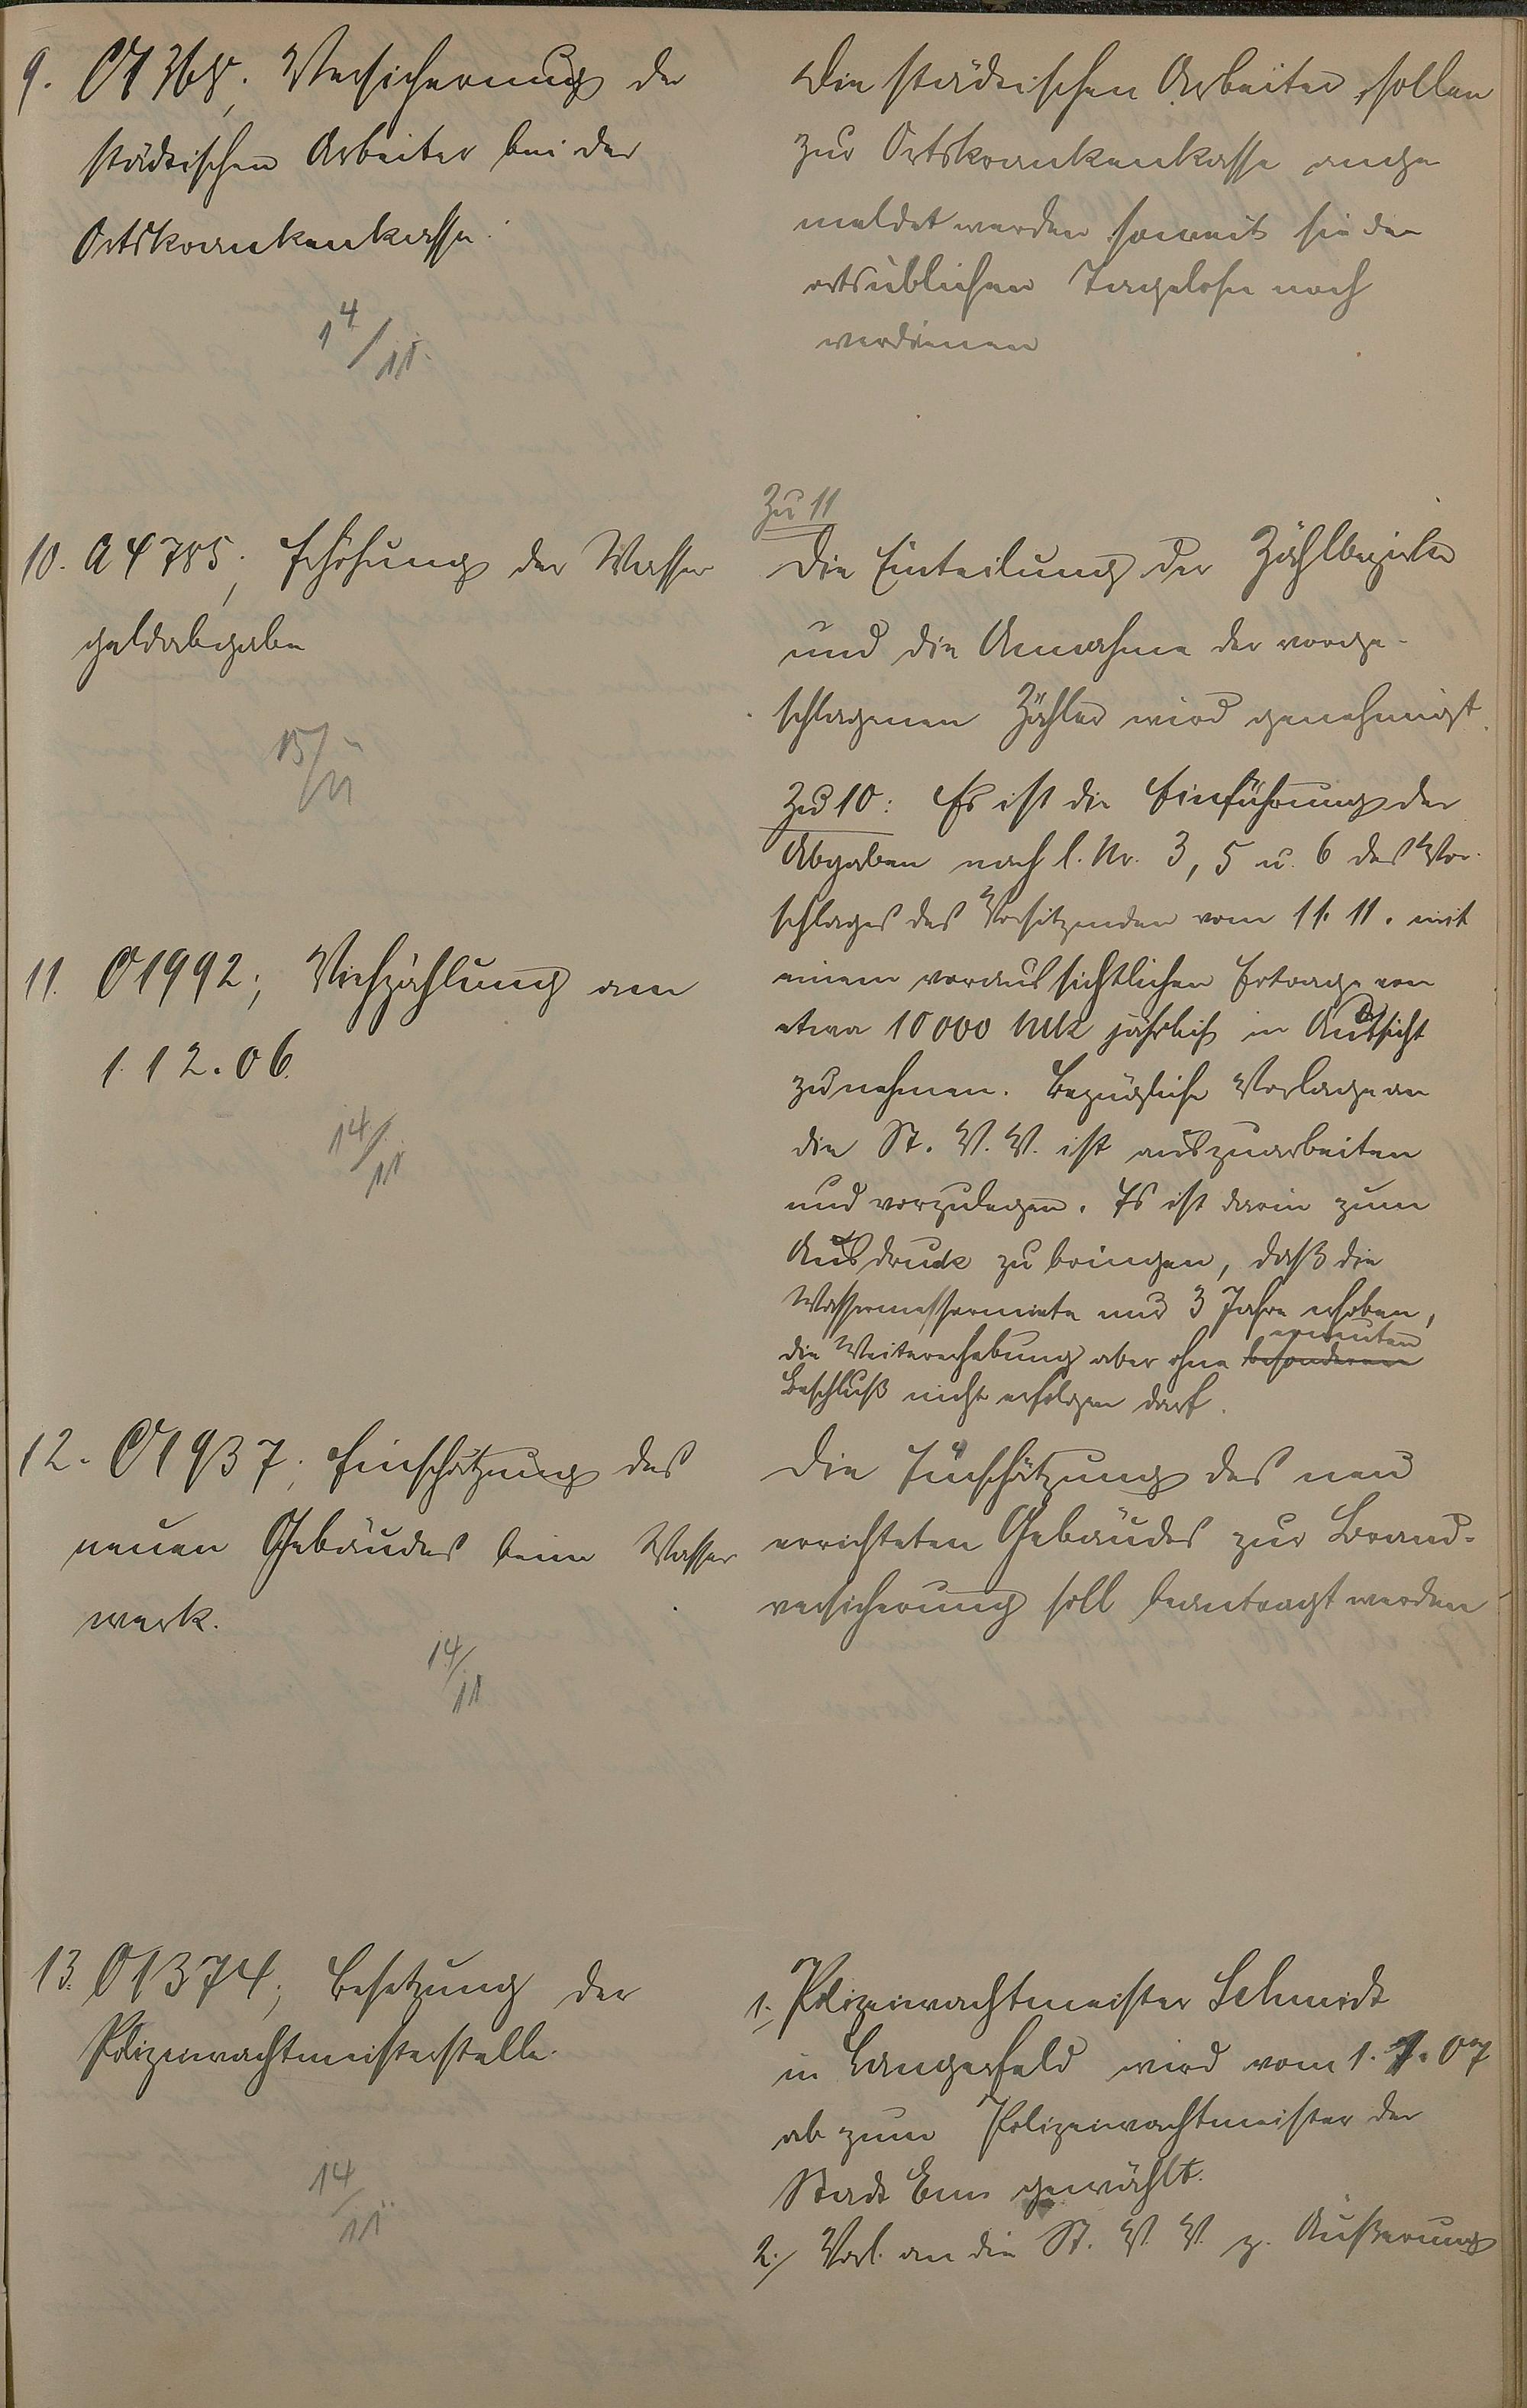 9. Versicherung der
städtischen Arbeiter bei der
Ortskrankenkasse.
14/11.
Die städtischen Arbeiter sollen
zur Ortskrankenkasse ange
meldet werden soweit sie den
ortsüblichen Tagelohn noch
verdienen
10. A 4785; Erhöhung der Wasser
geldabgabe
15/11
Zu 11
Die Einteilung der Zählbezirke
und die Annahme der vorge-
schlagenen Zähler wird genehmigt.
Zu 10: Es ist die Einführung der
Abgaben nach l. Nr. 3, 5 u. 6 des Vor-
schlages des Vorsitzenden vom 11. 11. mit
einem voraussichtlichen Ertrage von
etwa 10 000 Mk jährlich in Aussicht
zu nehmen. Bezügliche Vorlage an
die St. V. V. ist auszuarbeiten
und vorzulegen. Es ist darin zum
Ausdruck zu bringen, daß die
Wassermessermiete nur 3 Jahre erhoben,
die Weitererhebung aber ohne besonderen erneuten
Beschluß nicht erfolgen darf.
11. O 1992; Viehzählung am
1. 12. 06.
14/11
12. O 1937; Einschätzung des
neuen Gebäudes beim Wasser
werk.
14/11
Die Einschätzung des neu
errichteten Gebäudes zur Brand-
versicherung soll beantragt werden
13. O 1374; Besetzung der
Polizeiwachtmeisterstelle.
14/11
1. Polizeiwachtmeister Schmidt
in Langerfeld wird vom 1. 1. 07
ab zum Polizeiwachtmeister der
Stadt Ems gewählt.
2./ Vorl. an die St. V. V. z. Äußerung